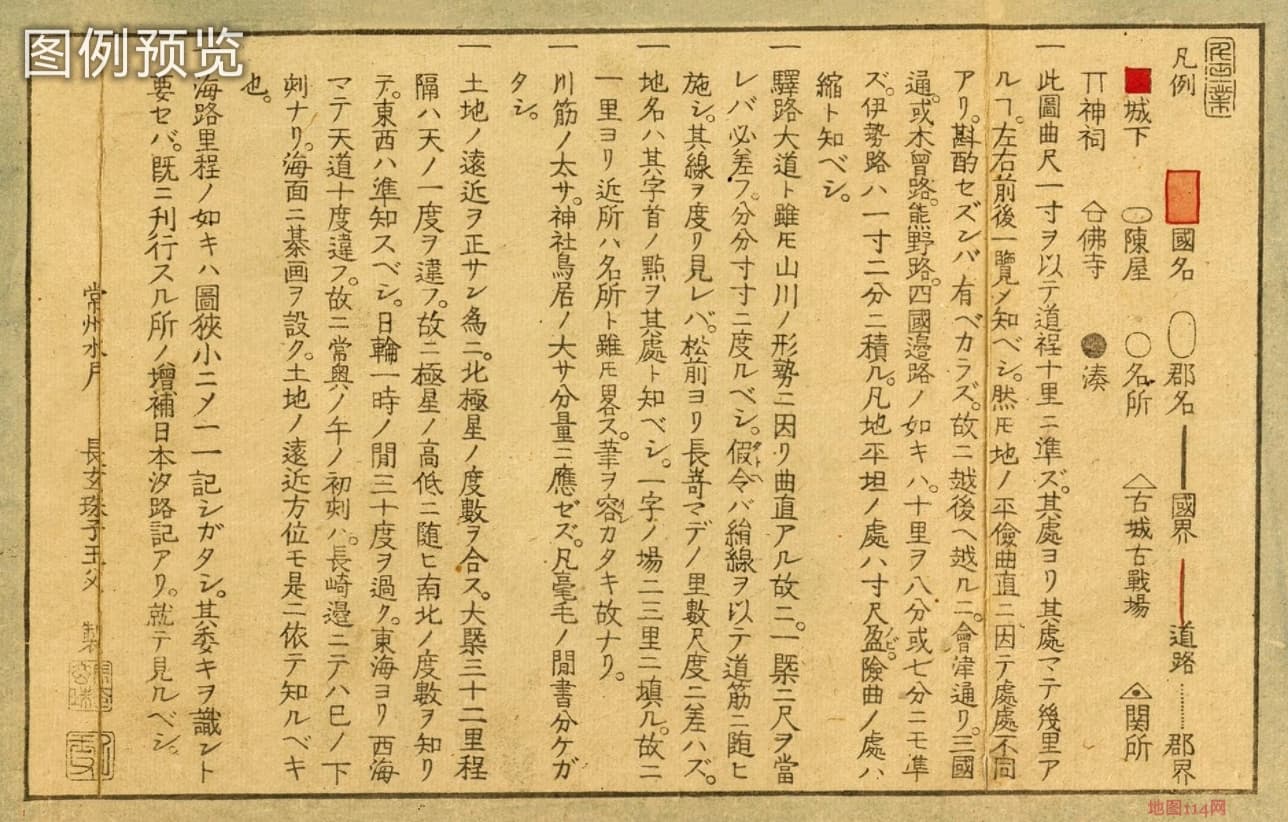 图例预览
凡例
國名
郡名
國界
道路
郡界
城下
陳屋
名所
古城古戰場
関所
神祠
佛寺
湊
一此圖曲尺一寸ヲ以テ道程十里ニ準ズ。其處ヨリ其處マテ幾里ア
ルヿ。左右前後一覽〆知ベシ。然𪜈地ノ平儉曲直ニ因テ處處不同
アリ。斟酌セズンバ有ベカラズ。故ニ越後ヘ越ルニ。會津通リ。三國
通。或木曾路。熊野路。四國邊路ノ如キハ。十里ヲ八分或七分ニモ準
ズ。伊勢路ハ一寸二分ニ積ル。凡地平坦ノ處ハ寸尺盈ノビ。險曲ノ處ハ
縮ト知ベシ。
一驛路大道ト雖𪜈山川ノ形勢ニ因リ曲直アル故ニ。一槩ニ尺ヲ當
レバ必差フ。分分寸寸ニ度ルベシ。假令タトヘバ絹線ヲ以テ道筋ニ随ヒ
施シ。其線ヲ度リ見レバ。松前ヨリ長﨑マデノ里數尺度ニ差ハズ。
一地名ハ其字首ノ點ヲ其處ト知ベシ。一字ノ場二三里ニ填ル。故ニ
一里ヨリ近所ハ名所ト雖𪜈畧ス。筆ヲ容カタキ故ナリ。
一川筋ノ太サ。神社鳥居ノ大サ分量ニ應ゼズ。凡毫毛ノ間書分ケガ
タシ。
一土地ノ遠近ヲ正サン為ニ。北極星ノ度數ヲ合ス。大槩三十二里程
隔ハ天ノ一度ヲ違フ。故ニ極星ノ高低ニ随ヒ南北ノ度數ヲ知リ
テ。東西ハ準知スベシ。日輪一時ノ間三十度ヲ過ク。東海ヨリ西海
マテ天道十度違フ。故ニ常奥ノ午ノ初刻ハ。長崎邉ニテハ巳ノ下
刻ナリ。海面ニ棊画ヲ設ク。土地ノ遠近方位モ是ニ依テ知ルベキ
也。
一海路里程ノ如キハ圖狹小ニ〆一一記シガタシ。其委キヲ識ント
要セバ。既ニ刊行スル所ノ増補日本汐路記アリ。就テ見ルベシ。
常州水戸 長玄珠子玉父 製
地图114网